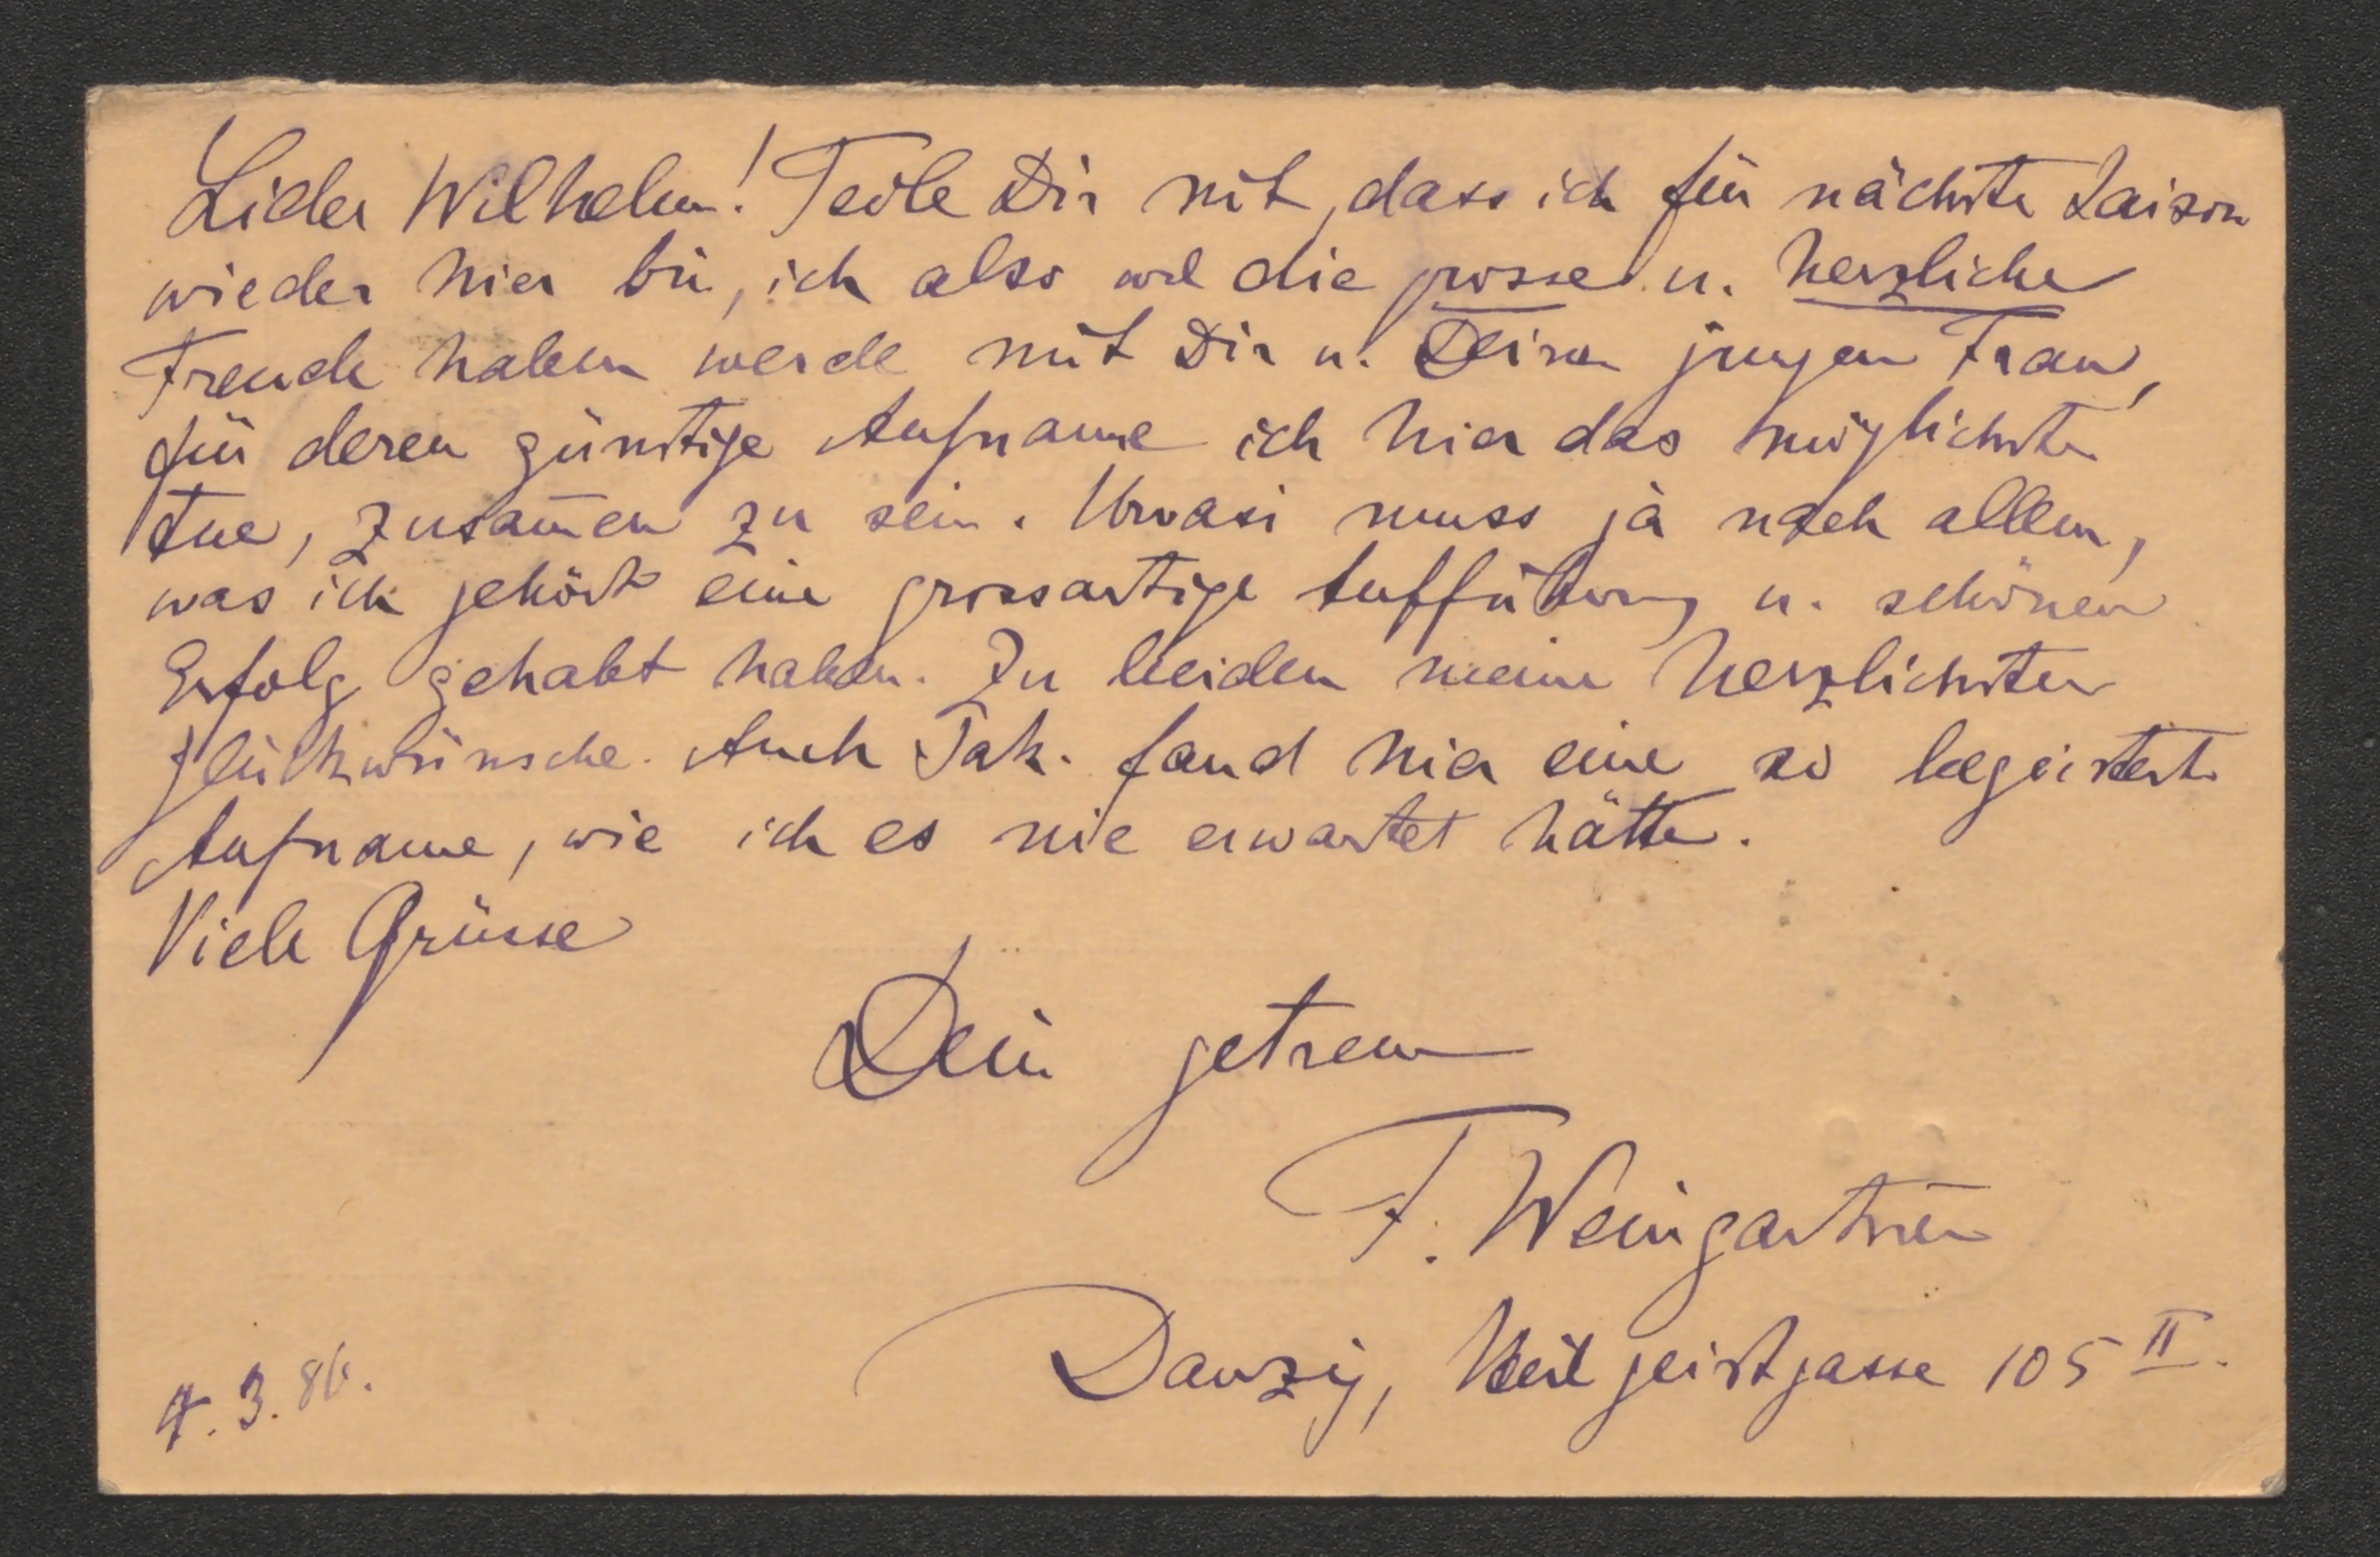 Lieber Wilhelm! Teile Dir mit, dass ich für nächste Saison
wieder hier bin, ich also wol die grosse u. herzliche
Freude haben werde mit Dir u. Deiner jungen Frau,
für deren günstige Aufname ich hier das möglichste
tue, zusam̄en zu sein. Urvasi muss ja nach allem,
was ich gehört eine grossartige Aufführung u. schönen
Erfolg gehabt haben. Zu beiden meine herzlichsten
Glückwünsche. Auch Sak. fand hier eine so begeisterte
Aufname, wie ich es nie erwartet hätte.
Viele Grüsse
Dein getreuer
F. Weingartner
Danzig, Heilgeistgasse 105 II.
4. 3. 86.